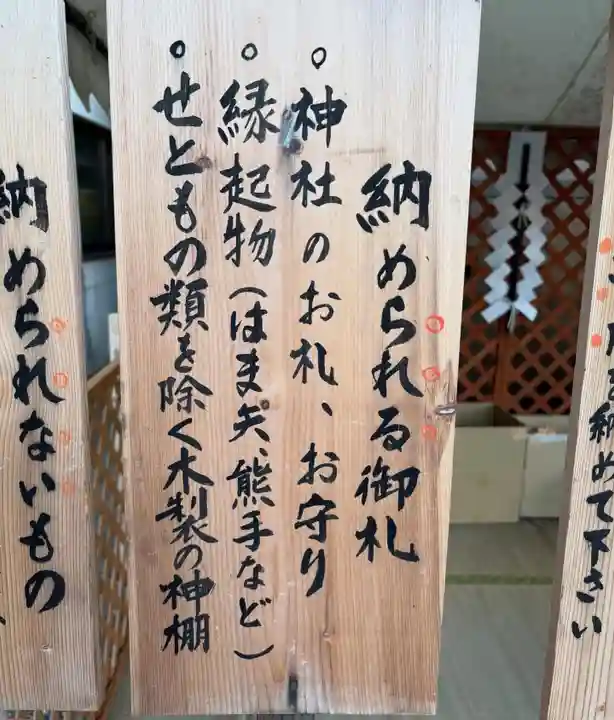 納めて下さい
納められる御札
。神社のお札、お守り
。縁起物(はま矢、熊手など)
。せともの類を除く木製の神棚
納められないもの